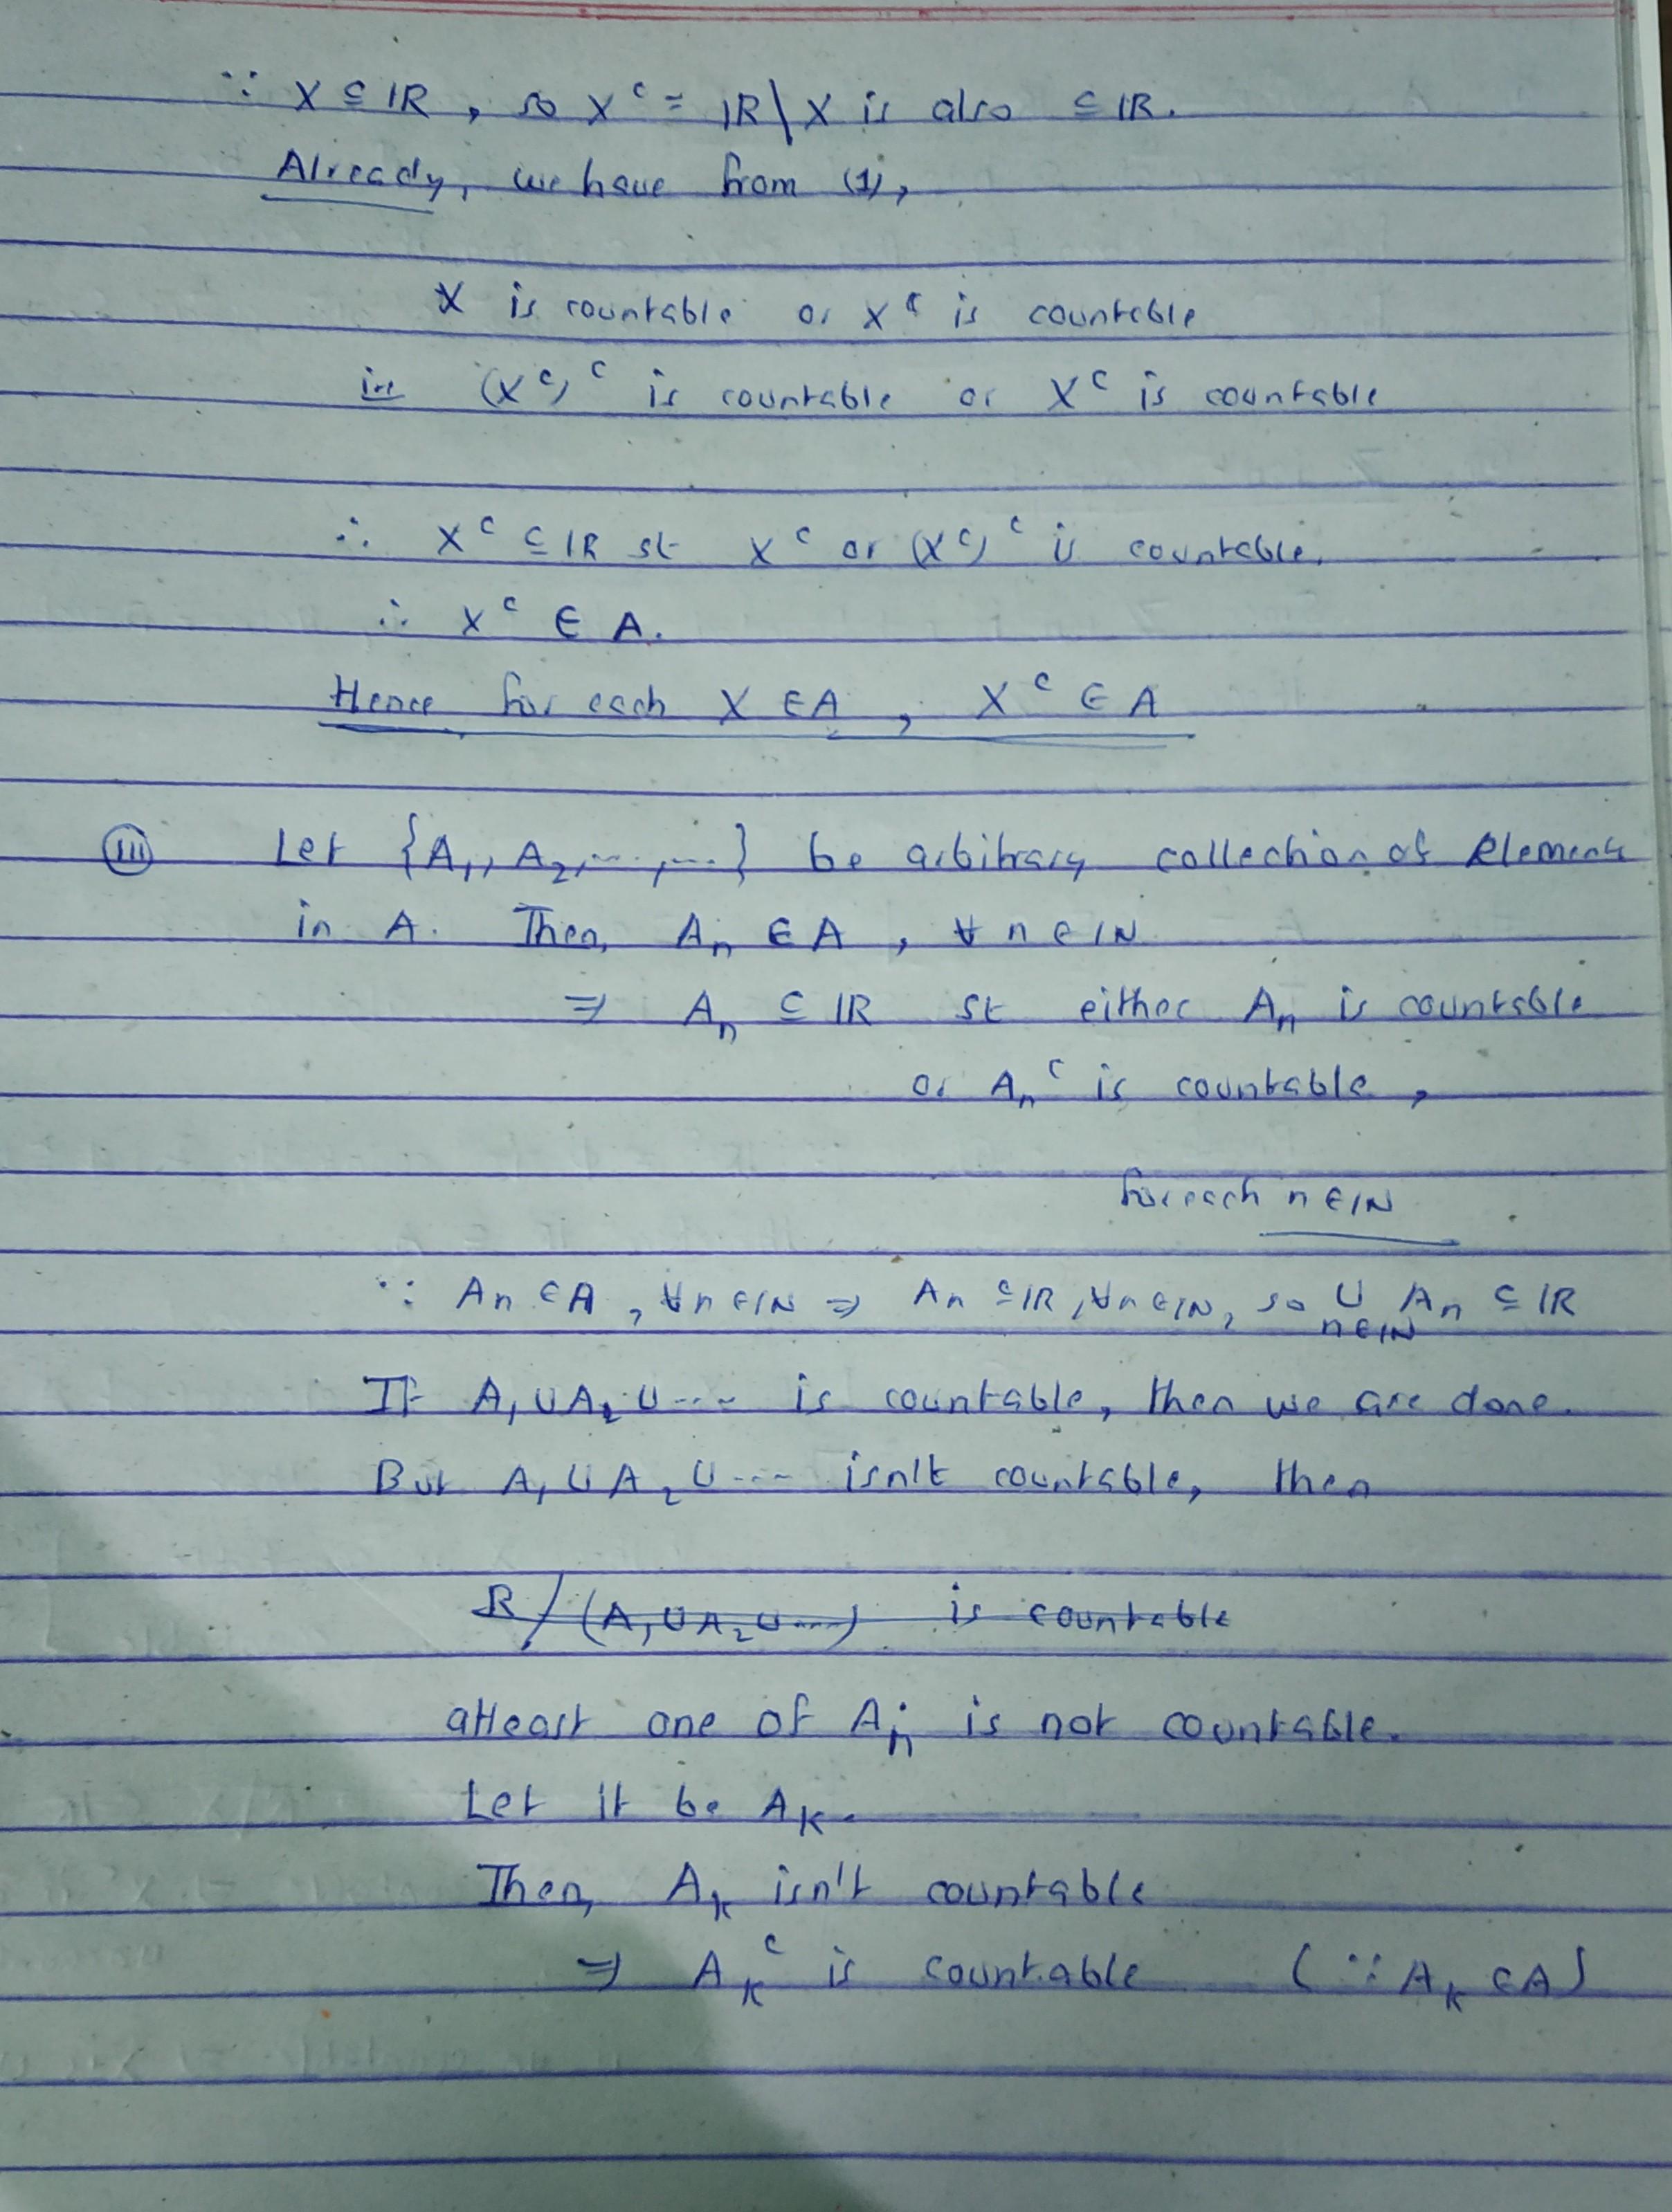 ∵ X ⊆ IR, so X^c = IR\X is also ⊆ IR.
Already, we have from (1),
X is countable or X^c is countable
i.e (X^c)^c is countable or X^c is countable
∴ X^c ⊆ IR st X^c or (X^c)^c is countable.
∴ X^c ∈ A.
Hence for each X ∈ A, X^c ∈ A
(iii) Let {A₁, A₂, ..., ...} be arbitrary collection of elements
in A. Then, Aₙ ∈ A, ∀ n ∈ IN
⇒ Aₙ ⊆ IR st either Aₙ is countable
or Aₙ^c is countable,
for each n ∈ IN
∵ An ∈ A, ∀n ∈ IN ⇒ An ⊆ IR, ∀n ∈ IN, so ∪ An ⊆ IR
n ∈ IN
If A₁ ∪ A₂ ∪ ... is countable, then we are done.
But A₁ ∪ A₂ ∪ ... isn't countable, then
R/(A₁ ∪ A₂ ∪ ...) is countable
atleast one of Aₙ is not countable.
Let it be A_K.
Then, A_k isn't countable
⇒ A_K^c is countable (∵ A_K ∈ A)